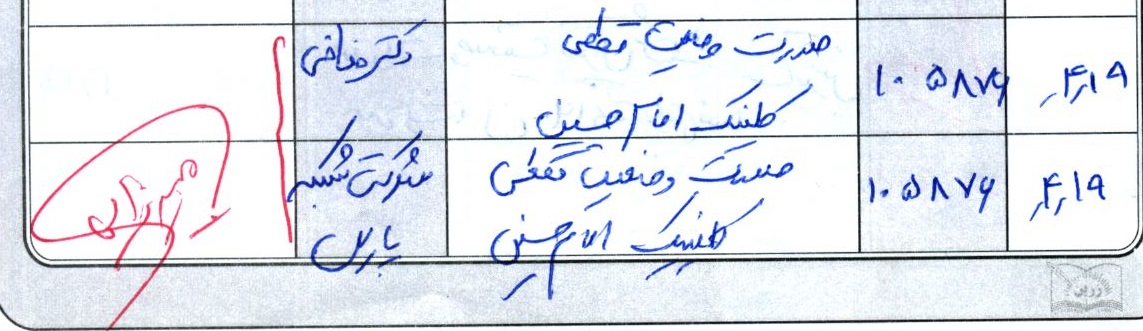 ۴,۱۹ ۱۰۵۸۷۶ صورت وضعیت قطعی دکتر
کلینیک امام حسین
۴,۱۹ ۱۰۵۸۷۶ صورت وضعیت قطعی شرکت شبکه
کلینیک امام حسین